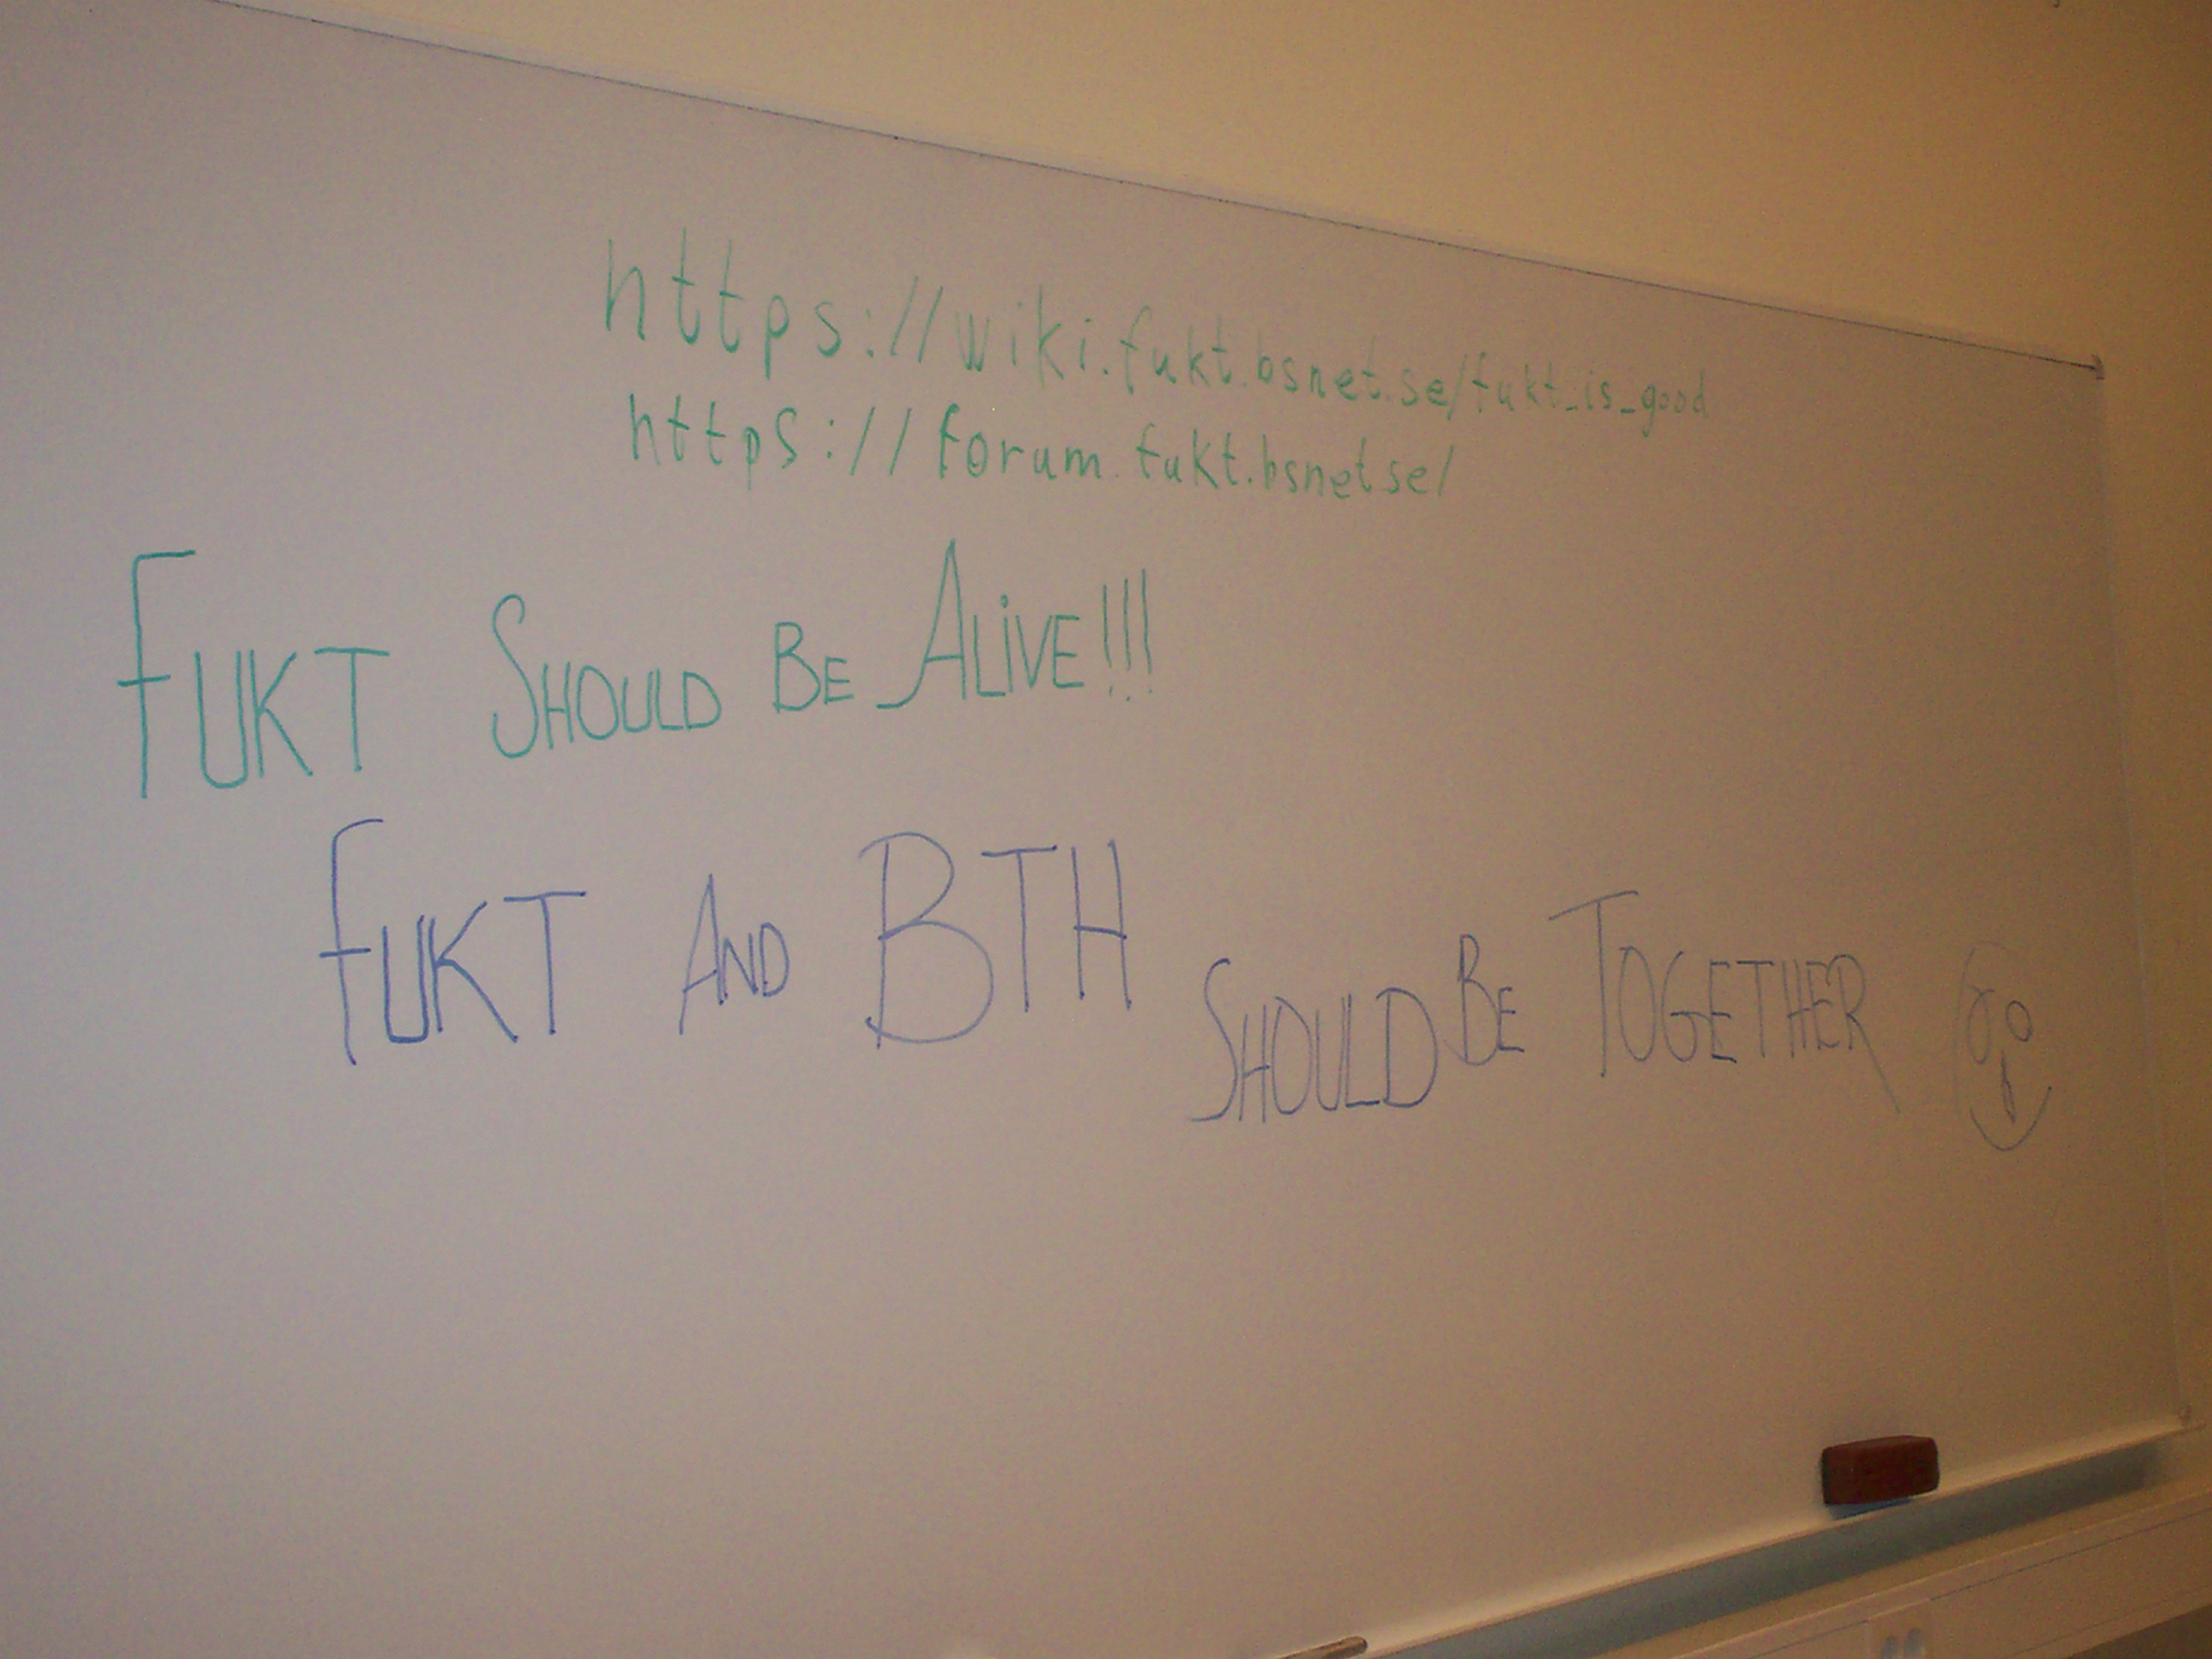 https://wiki.fukt.bsnet.se/fukt_is_good
https://forum.fukt.bsnet.se/
FUKT SHOULD BE ALiVE!!!
FUKT AND BTH SHOULD BE TOGETHER